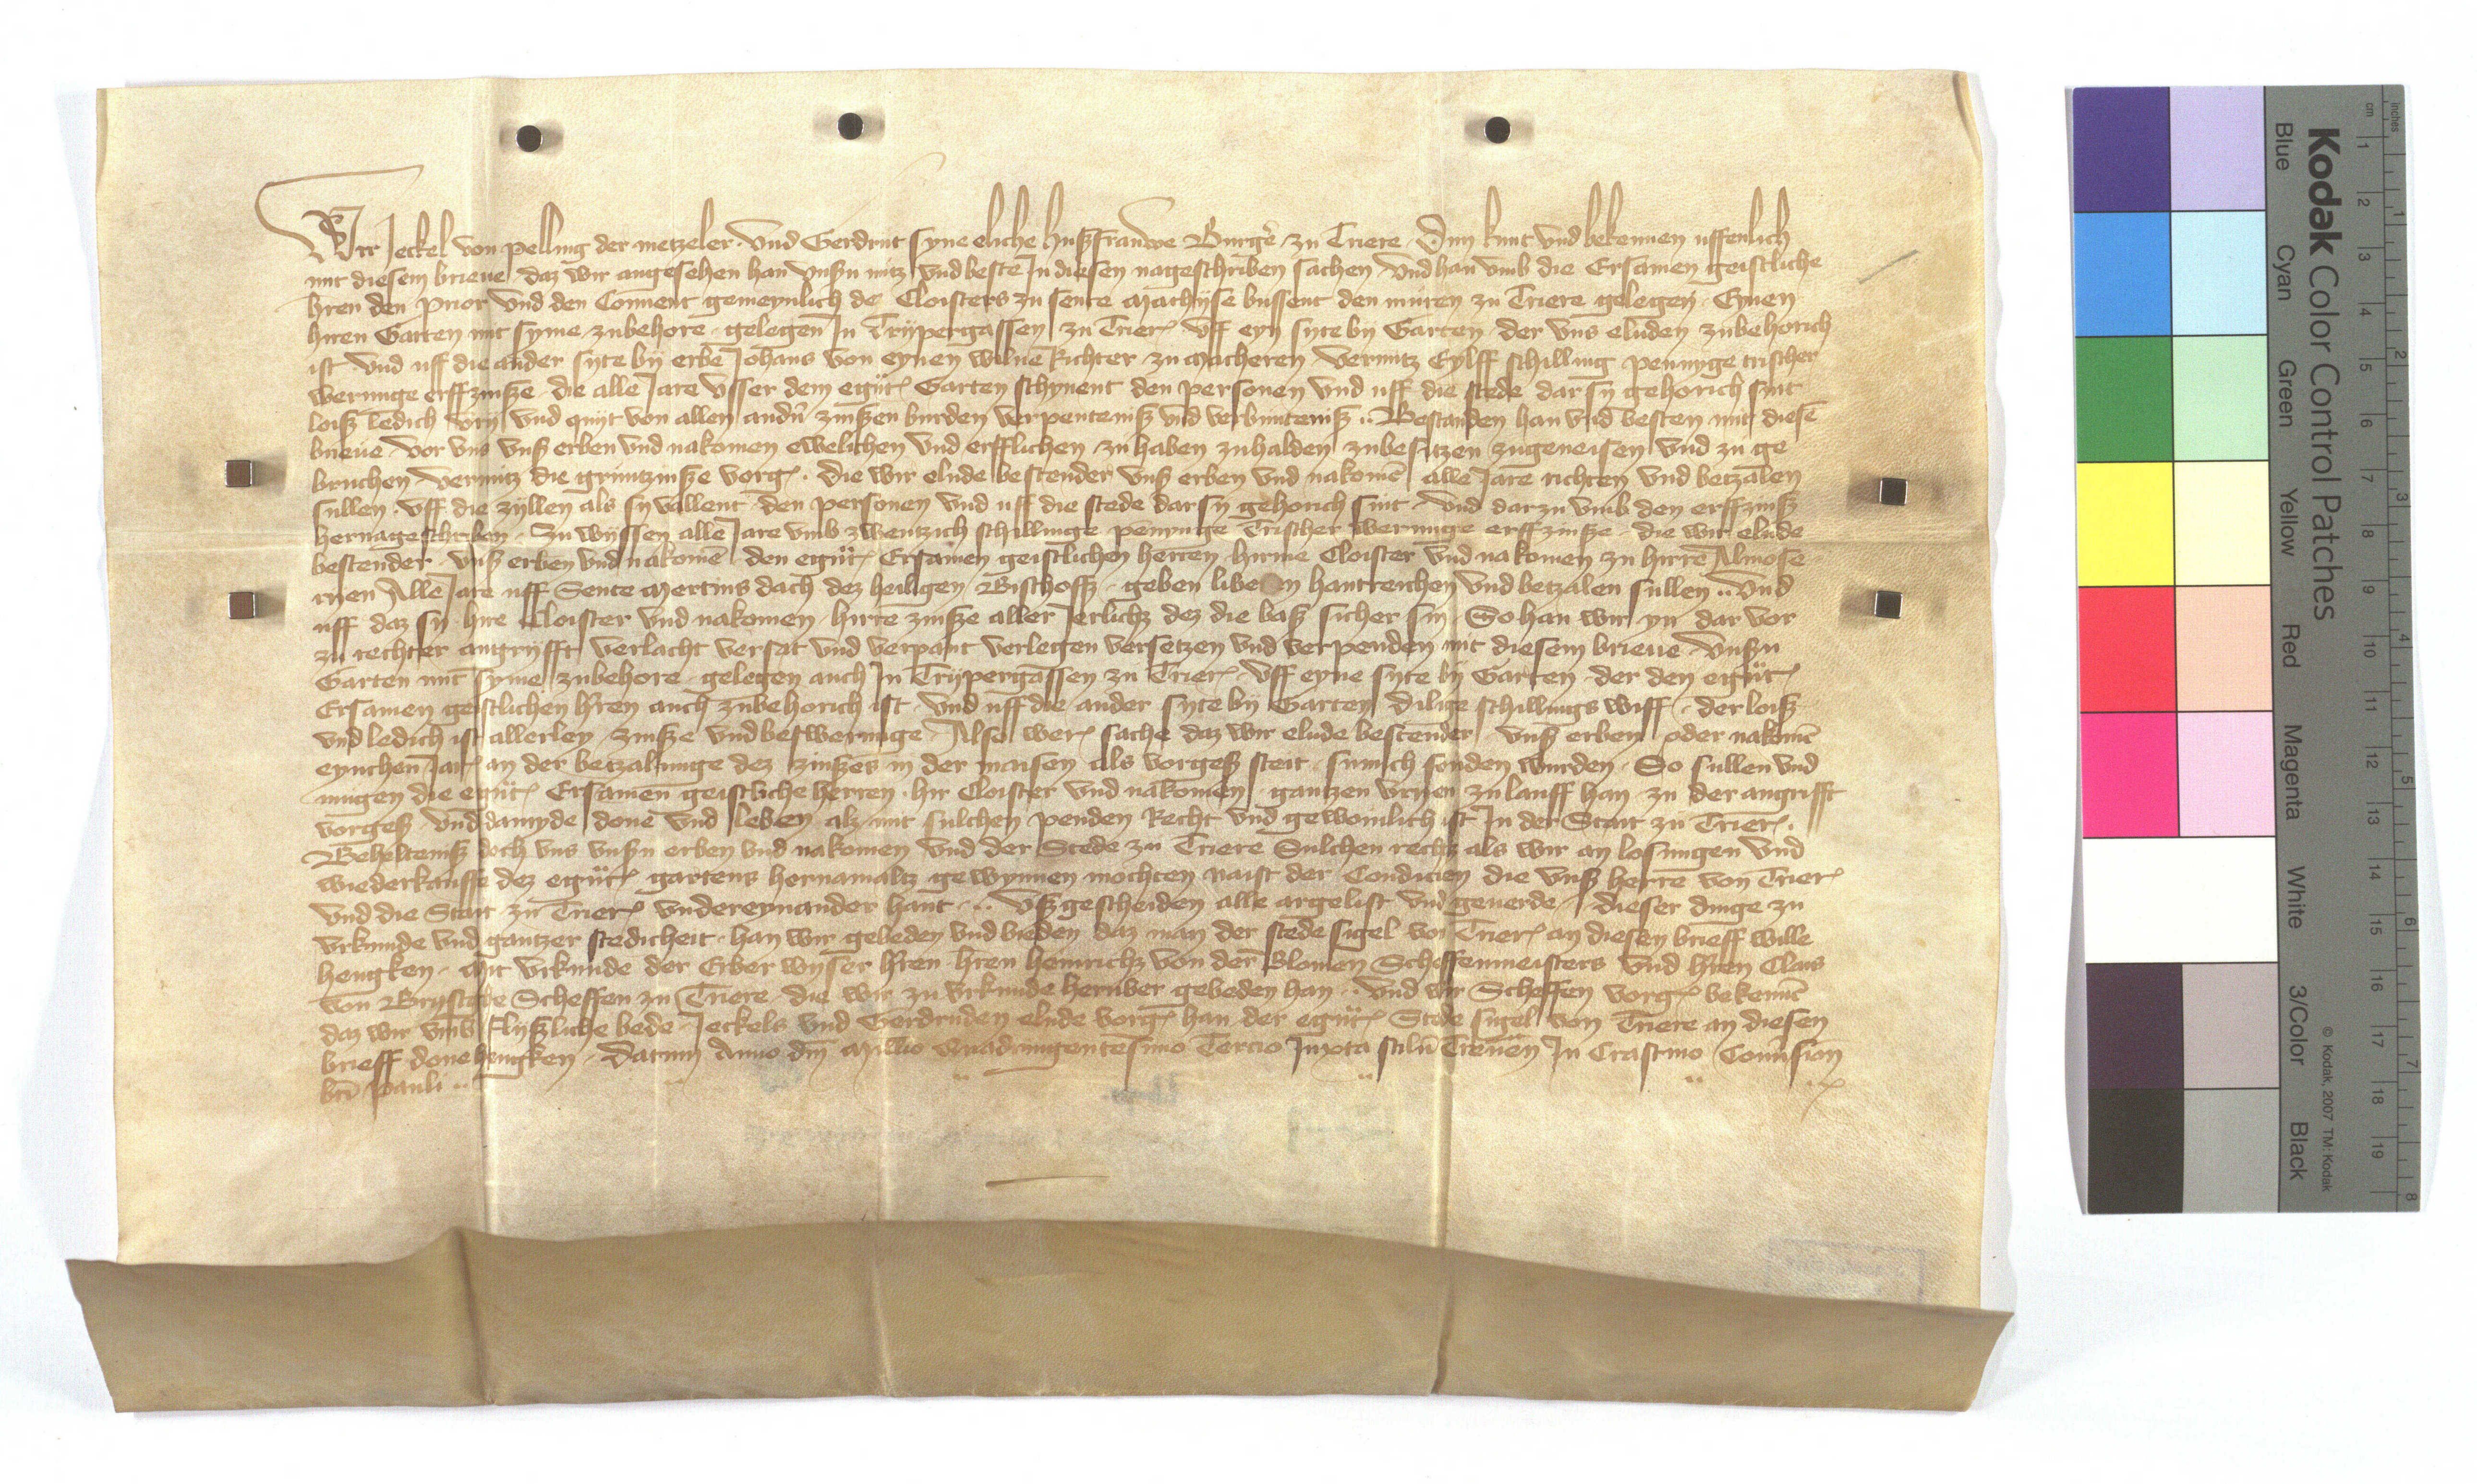 Wir Jeckel von pelling der metzeler · und Gerdrut syne eliche hußfrauwe Burg̉e zu Triere · Dun kunt und bekennen uffenlich
mit diesem brieue daz wir angesehen han unßn nütz und beste In diesen nageschriben sachen und han umb die Ersamen geistliche
hren den prior und den Conuent gemeynlich des Cloisters zu sente Mathyse bussent den muren zu Triere gelegen · Eynen
hiren Garten mit syme zubehore · gelegen In Trijpergassen zu Trier uff eyn syte by Garten der uns eluden zubehorich
ist und uff die ander syte by erbe Johans von eynen wilne Richter zu Macheren vermitz Eylff schilling pennyge trischer
werunge erffzinße die alle Jare usser dem egüt Garten schynent den personen und uff die stede dar sy gehorich sint
loiß ledich vry und quyt von allen andn zinßen burden verpenteniß und verbunteniß .. Bestanden han und besten mit diese
brieue vor uns unß erben und nakomen ewelichen und erfflichen zu haben zuhalden zubesitzen zugeneisen und zu ge
bruchen vermitz die gruntzinße vorg · die wir elude bestender unß erben und nakome alle Jare richten und betzalen
sullen uff die zyllen als sy vallent den personen und uff die stede dar sy gehorich sint · und darzu umb den erffzinß
hernageschriben · Zu wyssen alle Jare umb zwentzich schillinge penynge Trischer werunge erffzinße die wir elude
bestender unß erben und nakome den egüt Ersamen geistlichen herren hirme Cloister und nakomen zu hirre Almose
ryen Alle Jare uff Sente Mertins dach dez heiligen Bischoffs · geben liben hantreichen und betzalen sullen .. und
uff daz sy hire Cloister und nakomen hirre zinße aller Jerlichs dez die baß sicher sin So han wir yn dar vor
zu rechter angryfft verlacht versat und verpant verlegen versetzen und verpenden mit diesem brieue unßn
Garten mit syme zubehore gelegen auch In Trijpergassen zu Trier uff eyne syte by Garten der den egüt
Ersamen geistlichen hren auch zubehorich ist und uff die ander syte by Garten dilige schillings wiff · der loiß
und ledich ist allerley zinße und beswerunge Also wer sache daz wir elude bestender unß erben oder nakome
eynchen Jar an der betzalunge dez zinßes in der maisen als vorgeß steit sumich fonden wurden So sullen und
mugen die egüt Ersamen geistliche herren hir Cloister und nakomen gantzen vryen zulauff han zu der angrifft
vorgeß und damyde done und leben alz mit sulchen penden Recht und gewonlich ist In der Stait zu Trier ·
Behelteniß doch uns unßn erben und nakomen und der Stede zu Triere Sulchen rechtz als wir an losungen und
wiederkauffe dez egüt gartens hernamaltz gewynnen mochten naist der Condicien die unß herre von Trier
und die Stait zu Trier undereynander hant .. ußgescheiden alle argelist und geuerde dieser dinge zu
urkunde und gantzer stedicheit han wir gebeden und bieden daz man der stede sigel von Trier an diesen brieff wille
hengken · Mit urkunde der Erber wyser hren hren Heinrichs von der Blomen Scheffenmeisters und hren Clais
von Britte Scheffen zu Triere die wir zu urkunde heruber gebeden han .. und wir Scheffen vorg bekenne
daz wir umb flyßliche bede Jeckels und Gerdruden elude vorg han der egüt Stede sigel von Triere an diesen
brieff done hengken · Datum Anno dni Millio Quadringentesimo Tercio Juxta stilu Treuen In Crastino Conuersion
bti pauli ..
Kodak Color Control Patches
© Kodak, 2007 TM: Kodak
Blue Cyan Green Yellow Red Magenta White 3/Color Black
cm 1 2 3 4 5 6 7 8 9 10 11 12 13 14 15 16 17 18 19
inches 1 2 3 4 5 6 7 8